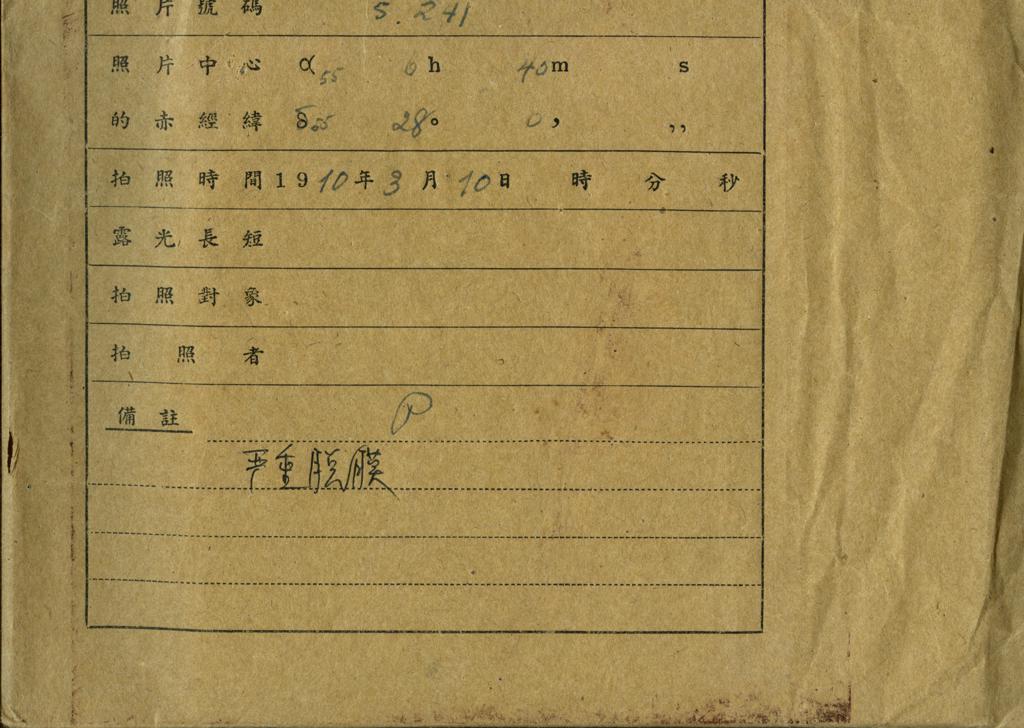 照片號碼 5.241
照片中心 α55 0h 40m s
的赤經緯 δ55 28° 0, ,,
拍照時間1910年3月10日 時 分 秒
露光長短
拍照對象
拍照者
備註 P
严重脱膜